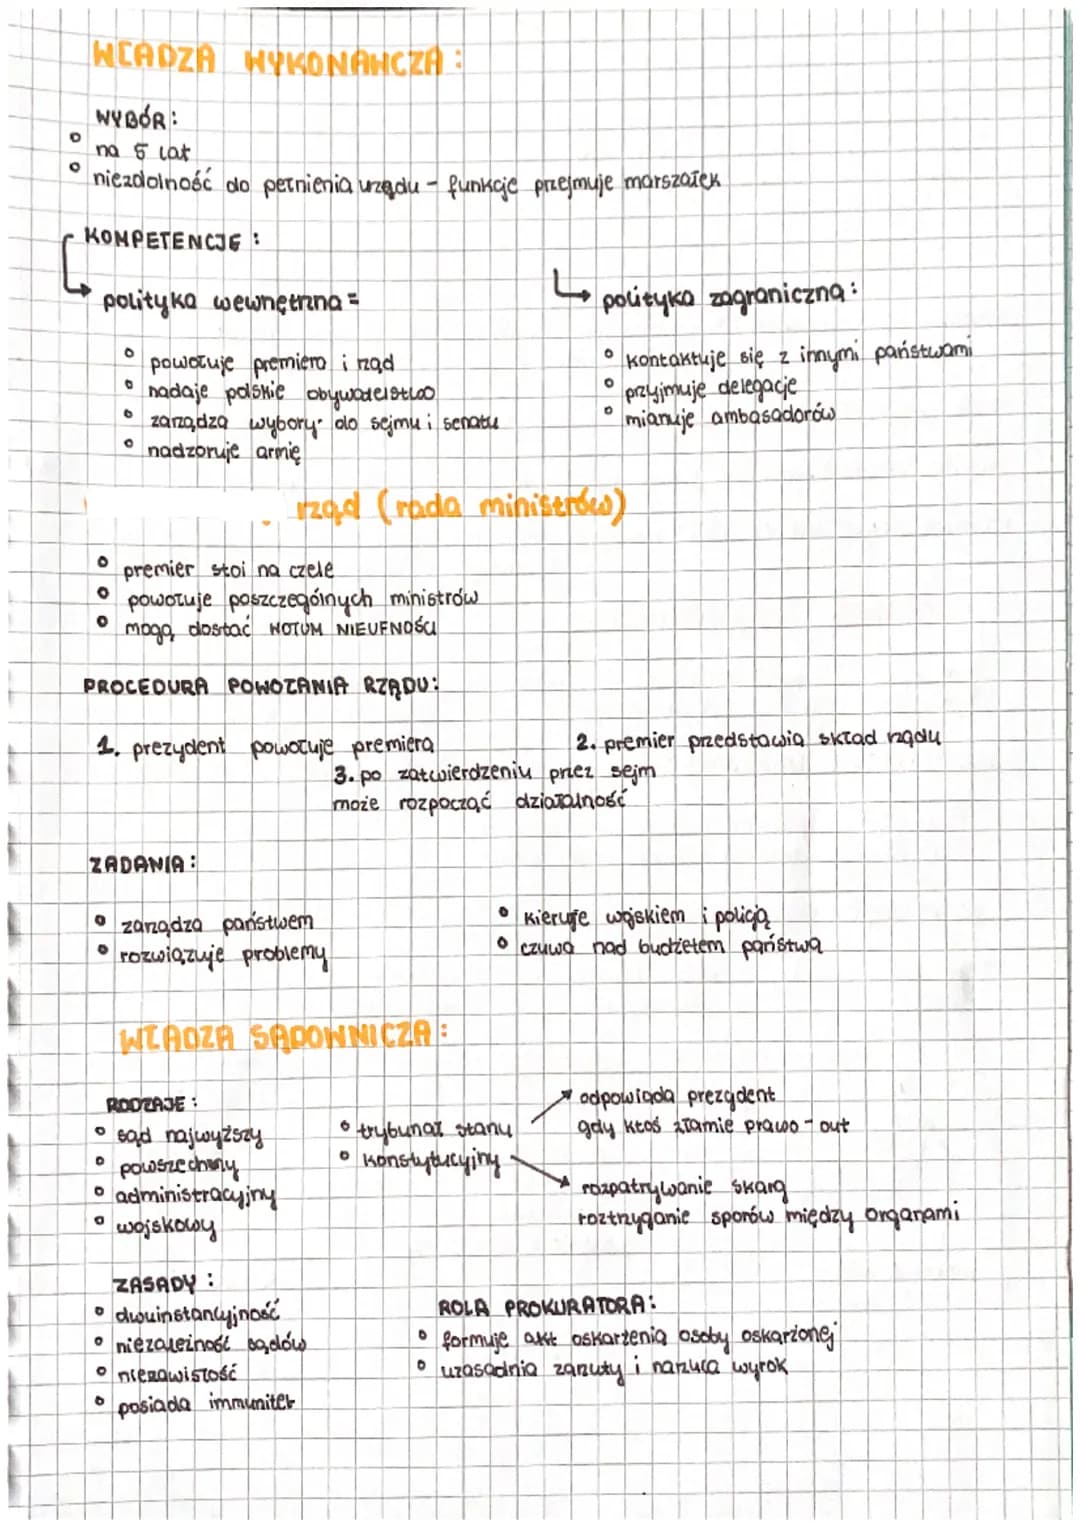 WŁADZA WYKONAWCZA:
WYBÓR:
na 5 lat
niezdolność do pełnienia urzędu - funkcje przejmuje marszałek
KOMPETENCJE:
polityka wewnętrzna:
powołuje premiera i rząd
nadaje polskie obywatelstwo
zarządza wybory do sejmu i senatu
nadzoruje armię
polityka zagraniczna:
kontaktuje się z innymi państwami
przyjmuje delegacje
mianuje ambasadorów
rząd (rada ministrów)
premier stoi na czele
powołuje poszczególnych ministrów
mogą dostać WOTUM NIEUFNOŚCI
PROCEDURA POWOŁANIA RZĄDU:
1. prezydent powołuje premiera
2. premier przedstawia skład rządu
3. po zatwierdzeniu przez sejm
może rozpocząć działalność
ZADANIA:
zarządza państwem
rozwiązuje problemy
kieruje wojskiem i policją
czuwa nad budżetem państwa
WŁADZA SĄDOWNICZA:
RODZAJE:
sąd najwyższy
powszechny
administracyjny
wojskowy
trybunał stanu
konstytucyjny
odpowiada prezydent
gdy ktoś złamie prawo - out
rozpatrywanie skarg
roztrzyganie sporów między organami
ZASADY:
dwuinstancyjność
niezależność sądów
niezawistość
posiada immunitet
ROLA PROKURATORA:
formuje akt oskarżenia osoby oskarżonej
uzasadnia zarzuty i narzuca wyrok